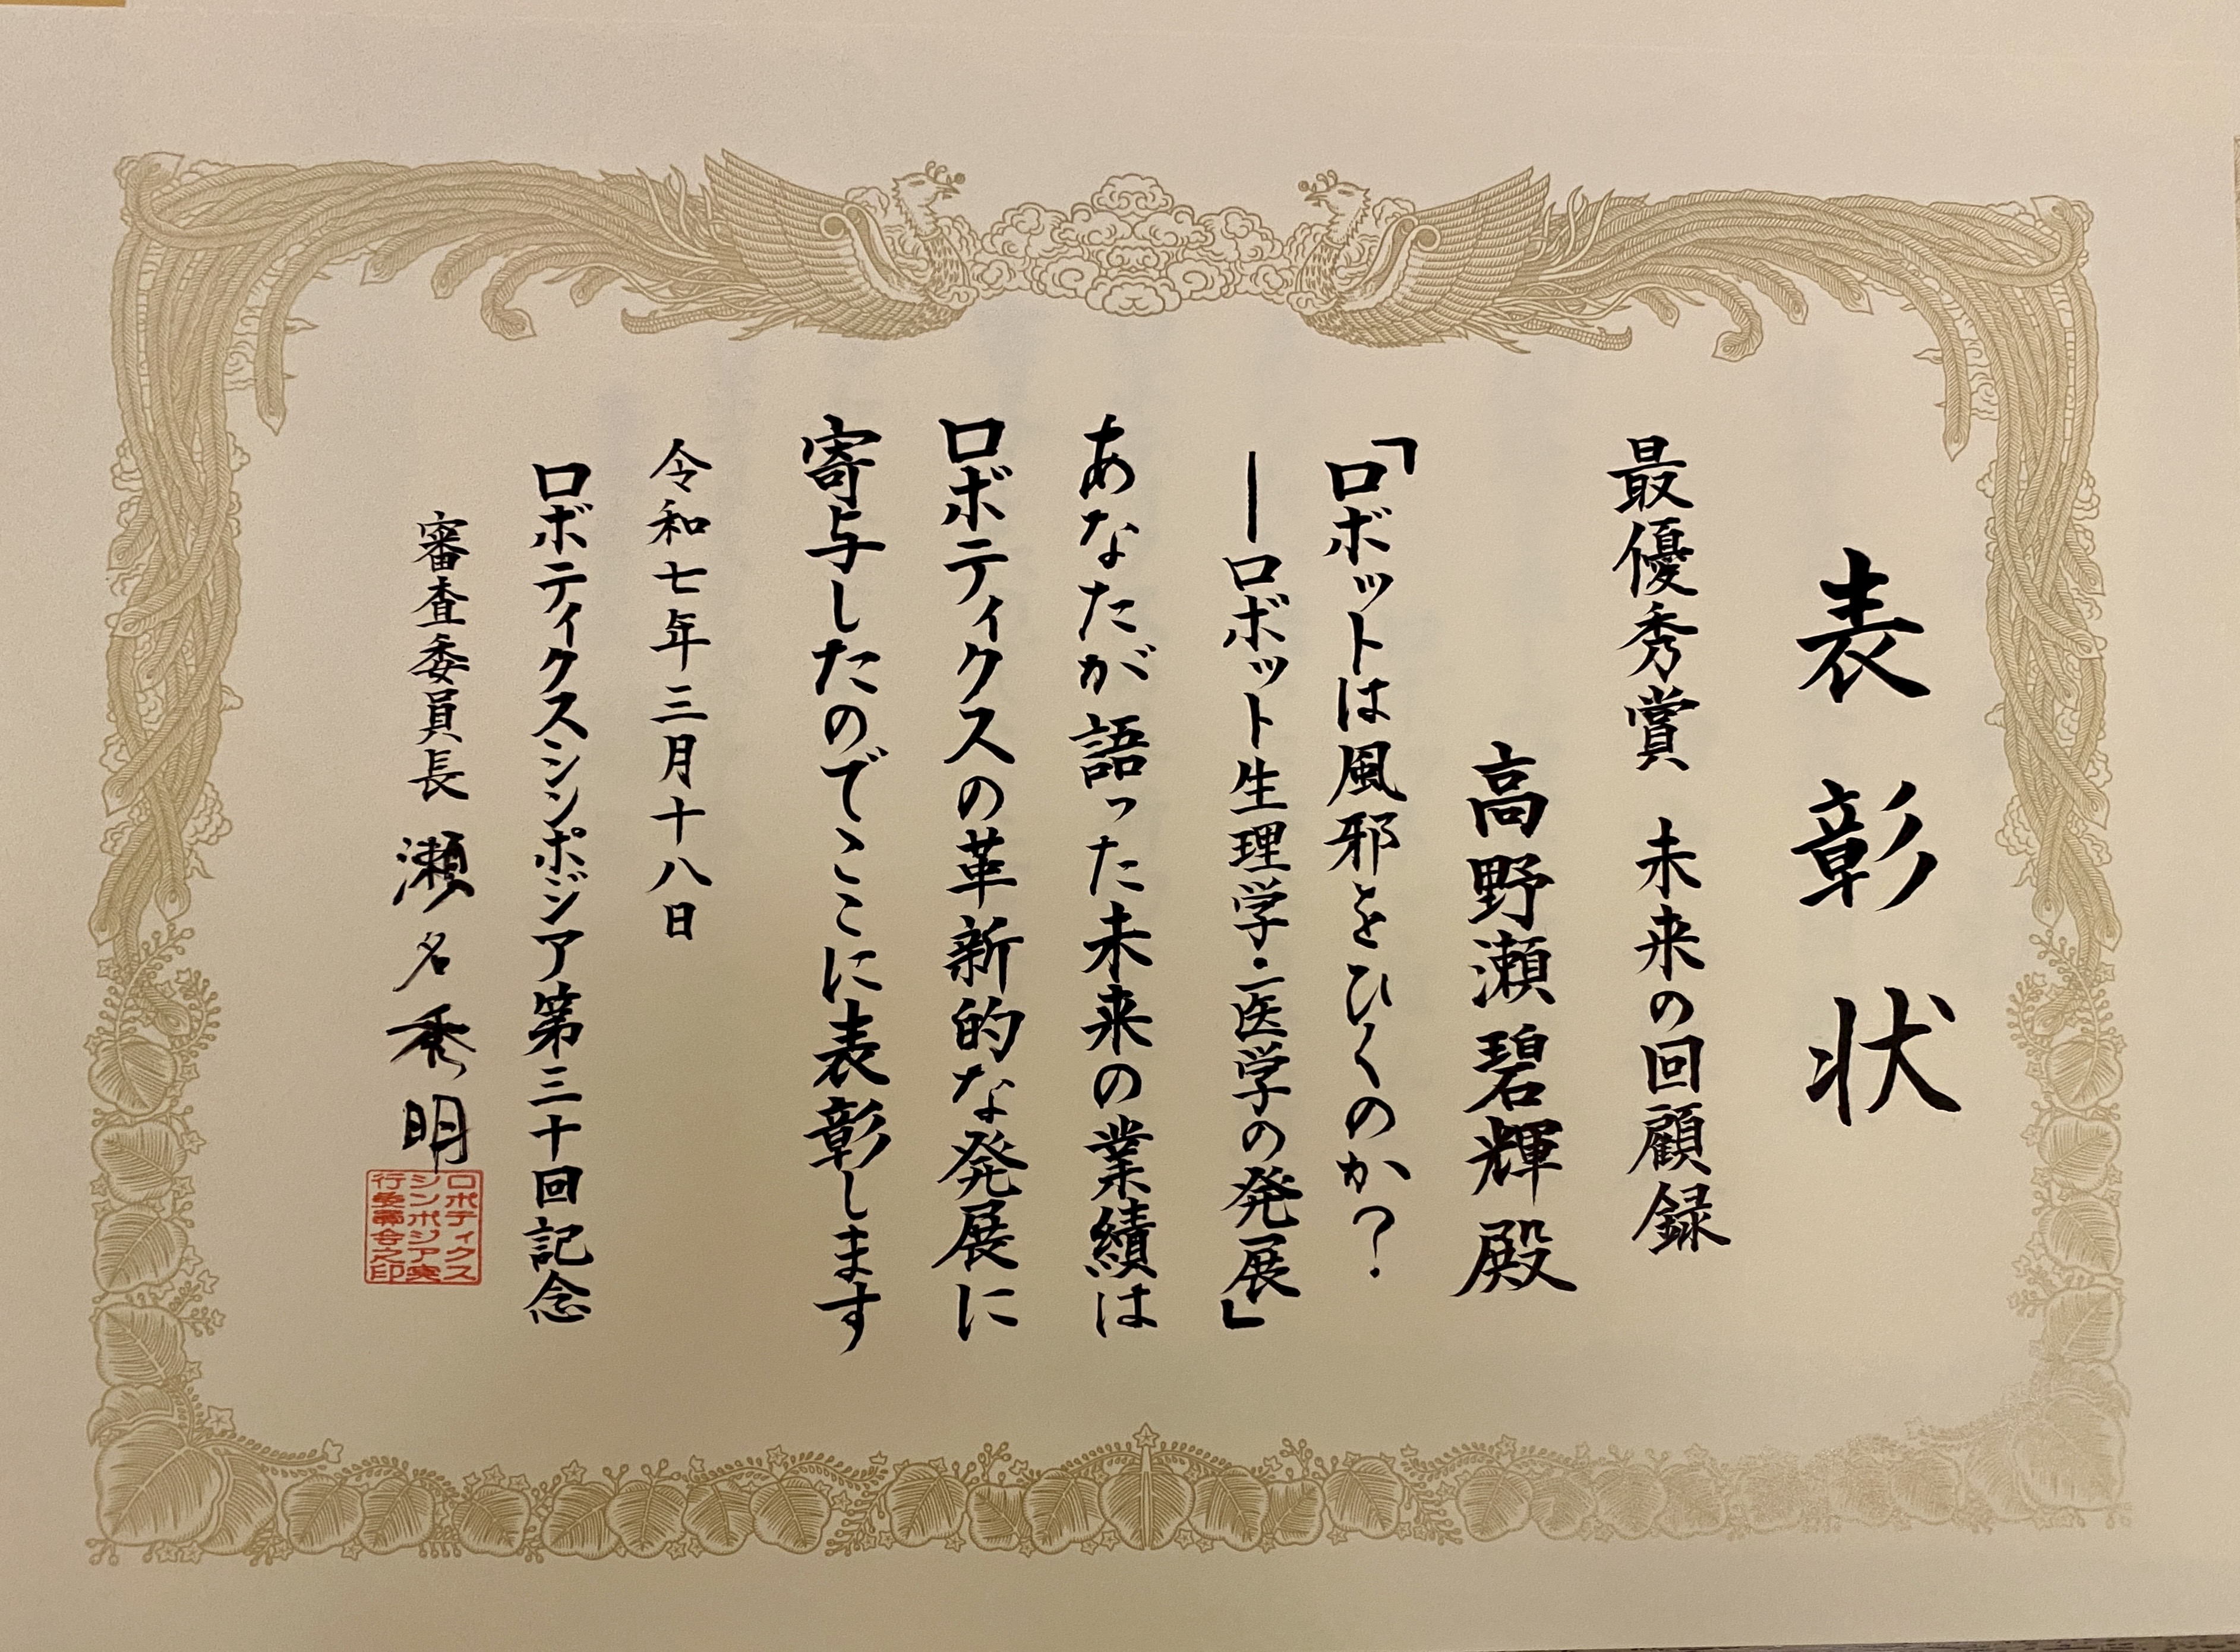 表彰状
最優秀賞 未来の回顧録
高野瀬碧輝殿
「ロボットは風邪をひくのか?
―ロボット生理学・医学の発展」
あなたが語った未来の業績は
ロボティクスの革新的な発展に
寄与したのでここに表彰します
令和七年三月十八日
ロボティクスシンポジア第三十回記念
審査委員長 瀬名秀明
ロボティクス
シンポジア実
行委員会之印